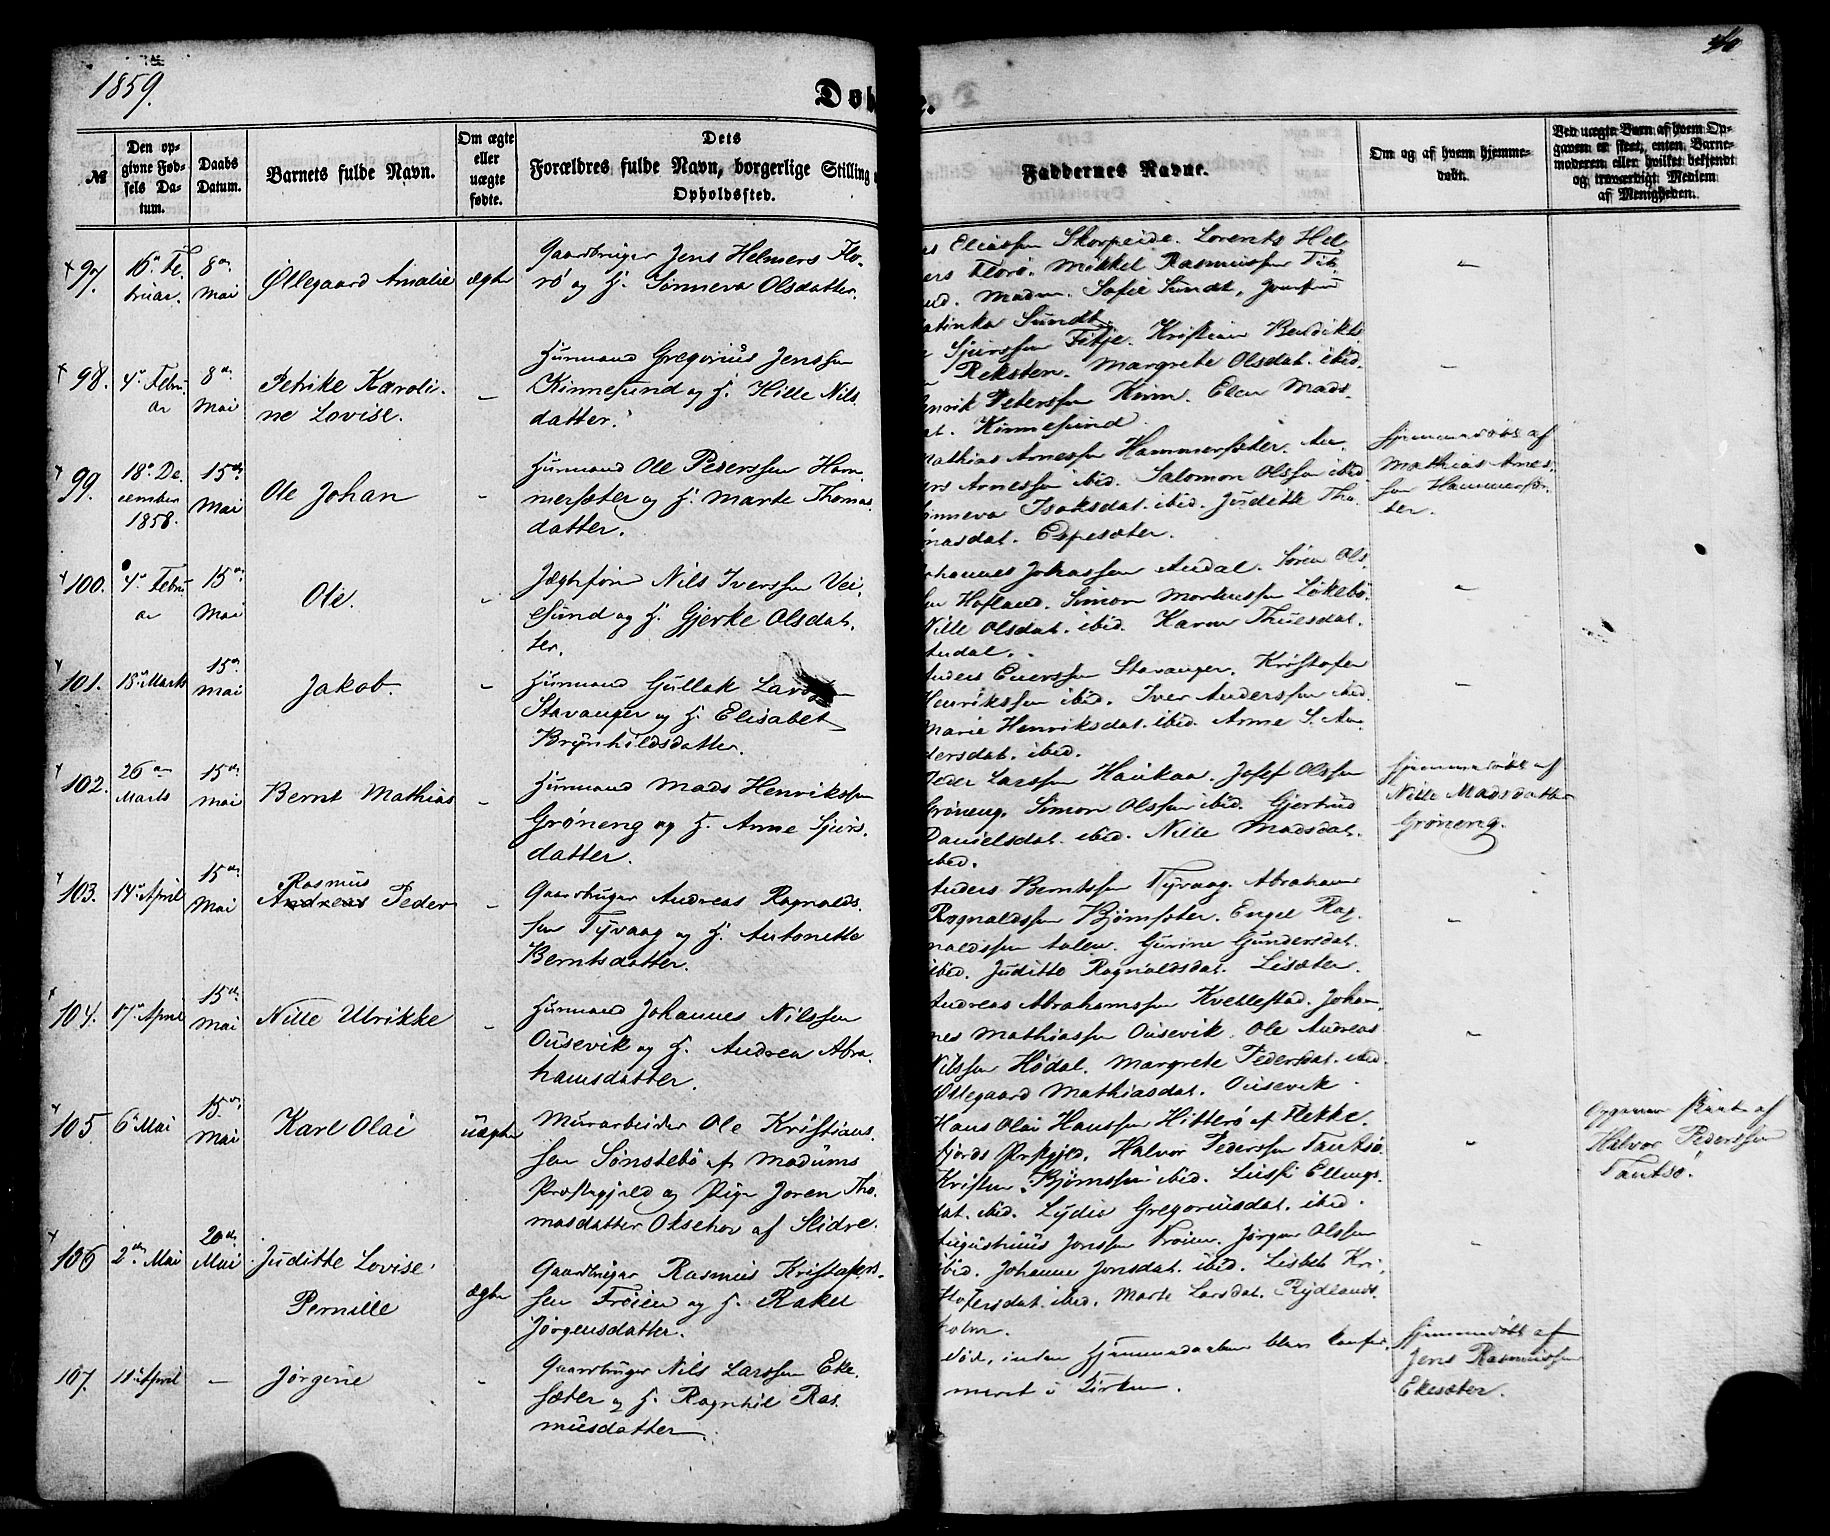 1859.
Dob
№
Den op-
givne Fød-
sels Da-
tum.
Daabs
Datum.
Barnets fulde Navn.
Om ægte
eller
uægte
fødte.
Dets
Forældres fulde Navn, borgerlige Stilling
Opholdssted.
Faddernes Navne.
Om og af hvem hjemme-
døbt.
Ved uægte Barn af hvem Op-
gaven er skeet, enten Barne-
moderen eller hvilket bekjendt
og troværdigt Medlem
af Menigheden.
97.
16de Fe-
bruar.
8de
Mai
Øllegaard Amalie
ægte
Gaardbruger Jens Helmers Flo-
rø og H. Sønneva Olsdatter.
as Eliassen Skorpeide. Lorents Hel
ers Florø. Mikkel Rasmussen
Madm. Sofie Sundt, Jomfru
Sundt
98.
4de Febru
ar
8de
Mai
Petrike Karoli-
ne Lovise.
-
Husmand Gregorius Jenssen
Kinnesund og H. Hille Nils
datter.
Sjurssen Fitje. Kristian Bendikts
Reksten. Margrete Olsdat. ibid.
enrik Peterssen Kinn. Elen Mads-
at. Kinnesund.
99.
18de De-
cember
1858.
15de
Mai
Ole Johan
-
Husmand Ole Pederssen Ham
mersæter og H. Marte Thomas
datter.
Mathias Arnessen Hammersæter. An-
ers Arnessen ibid. Salomon Olssen ibid
ønneva Isaksdat. ibid. Juditte Tho-
masdat. Espesæter.
Hjemmedøbt af
Mathias Arnes-
sen Hammersæ-
ter.
100.
4de Febru
ar
15de
Mai
Ole.
-
Jægtefører Nils Iverssen Vei-
esund og H. Gjerke Olsdat-
ter.
ohannes Johnssen Andal. Søren Ols-
sen Hofland. Simon Markussen Løkebø.
Nille Olsdat. ibid. Karen Thuesdat.
Andal.
101.
18de Marts
15de
Mai
Jakob.
-
Husmand Gullak Larssen
Stavanger og H. Elisabet
Brynhildsdatter.
Anders Enerssen Stavanger. Kristofer
Henrikssen ibid. Iver Anderssen ibid
Marie Henriksdat. ibid. Anne S. An-
dersdat. ibid.
102.
26de
Marts
15de
Mai
Bernt Mathias
-
Husmand Mads Henrikssen
Grøneng og H. Anne Sjurs-
datter.
Peder Larssen Haukaa. Josef Olssen
Grøneng. Simon Olssen ibid. Gjertrud
Danielsdat. ibid. Nille Madsdat.
ibid.
Hjemmedøbt af
Nille Madsdatter
Grøneng.
103.
14de April
15de
Mai
Rasmus
Andreas Peder
-
Gaardbruger Andreas Ragnalds-
sen Tyvaag og H. Antonette
Berntsdatter.
Anders Berntssen Tyvaag. Abraham
Ragnaldssen Bjørnsæter. Engel Rag-
naldssen Aalen. Gurine Gundersdat.
ibid. Juditte Ragnaldsdat. Lisæter.
104.
17de April
15de
Mai
Nille Ulrikke
-
Husmand Johannes Nilssen
Ousevik og H. Andrea Abra-
hamsdatter.
Andreas Abrahamssen Kvellestad. Johan-
nes Mathiassen Ousevik. Ole Andreas
Nilssen Hødal. Margrete Pedersdat. ibid.
Øllegaard Mathiasdat. Ousevik.
105.
6te Mai
15de
Mai
Karl Olai
uægte
Murarbeider Ole Kristians-
sen Sønstebø af Modums
Præstegjeld og Pige Joren Tho-
masdatter Oksehov af Slidre.
Hans Olai Hanssen Hitterø af Flekke-
fjords Prstgjeld. Halvor Pederssen Tautsø
Kristen Bjørnssen ibid. Lussi Ellings-
dat. ibid. Lydie Gregoriusdat. ibid
Opgaven skeet af
Halvor Pederssen
Tautsø.
106
2den Mai
20de
Mai
Juditte Lovise
Pernille
ægte
Gaardbruger Rasmus Kristofers-
sen Frøien og H. Rakel
Jørgensdatter.
Augustinus Jonssen Frøien. Jørgen Olssen
ibid. Johanne Jonsdat. ibid. Lisbet Kri-
stofersdat. ibid. Marte Larsdat. Rydlands-
holm.
107.
11te April
-
Jørgine
-
Gaardbruger Nils Larssen Eke-
sæter og H. Ragnhil Ras-
musdatter.
død, inden Hjemmedaaben blev konfir-
meret i Kirken.
Hjemmedøbt af
Jens Rasmussen
Ekesæter.